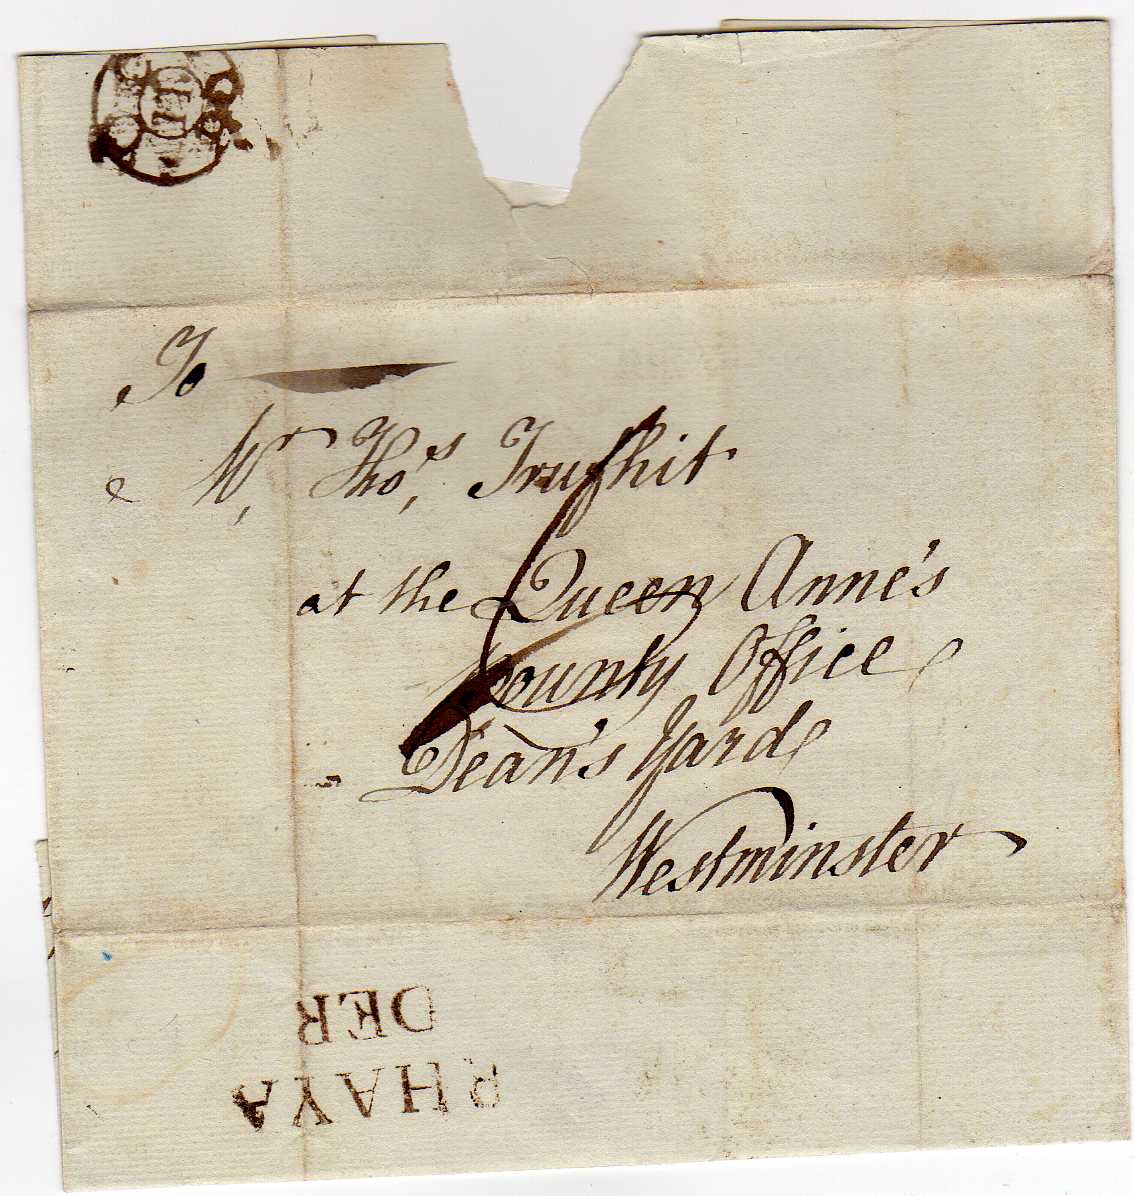 To
Mr. Thos. Trufhit
at the Queen Anne's
Bounty Office
Dean's Yard
Westminster
6
RHAYA
DER